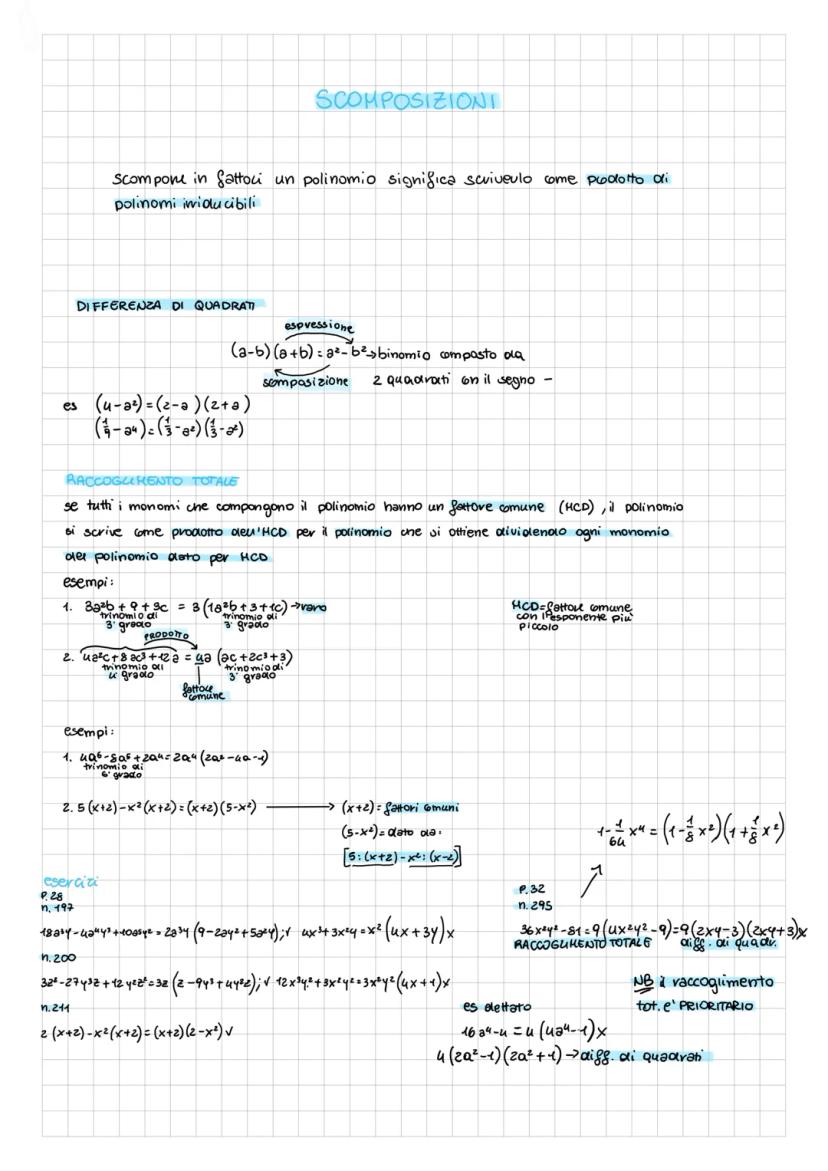 SCOMPOSIZIONI
scomporre in fattori un polinomio significa scriverlo come prodotto di
polinomi irriducibili
DIFFERENZA DI QUADRATI
espressione
(a-b)(a+b)=a²-b²→binomio composto da
scomposizione 2 quadrati con il segno -
es (4-a²)=(2-a)(2+a)
(1/9-a⁴)=(1/3-a²)(1/3-a²)
RACCOGLIMENTO TOTALE
se tutti i monomi che compongono il polinomio hanno un fattore comune (MCD), il polinomio
si scrive come prodotto dell'MCD per il polinomio che si ottiene dividendo ogni monomio
del polinomio dato per MCD
esempi:
1. 3a²b+9+3c = 3(1a²b+3+1c)→raro
trinomio di 3° grado
trinomio di 3° grado
MCD=fattore comune
con l'esponente più
piccolo
PRODOTTO
2. 4a²c+8ac³+12a = 4a(ac+2c³+3)
trinomio di 4° grado
trinomio di 3° grado
fattore
comune
esempi:
1. 4a⁶-8a⁵+2a⁴=2a⁴(2a²-4a-1)
trinomio di
6° grado
2. 5(x+2)-x²(x+2)=(x+2)(5-x²) → (x+2)= fattori comuni
(5-x²)= dato da:
[5:(x+2)-x²:(x-2)]
1-1/64 x⁴=(1-1/8 x²)(1+1/8 x²)
esercizi
P.28
n.197
18a³y-4a⁴y³+10a5y²=2a³y(9-2ay²+5a²y);√ 4x³+3x²y=x²(4x+3y)x
n.200
3z²-27y³z+12y²z²=3z(z-9y³+4y²z);√ 12x³y²+3x²y²=3x²y²(4x+1)x
n.211
2(x+2)-x²(x+2)=(x+2)(2-x²)√
P.32
n.295
36x²y²-81=9(4x²y²-9)=9(2xy-3)(2xy+3)x
RACCOGLIMENTO TOTALE diff. di quadr.
NB il raccoglimento
tot. e' PRIORITARIO
es dettato
16a⁴-4=4(4a⁴-1)x
4(2a²-1)(2a²+1)→diff. di quadrati